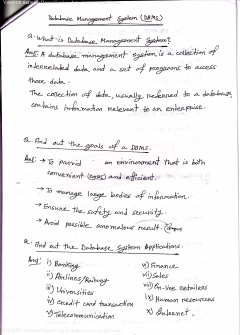 Database Management System (DBMS)
Q. What is Database Management System?
Ans: A database management system is a collection of
interrelated data and a set of programs to access
those data.
The collection of data, usually referred to a database,
contains information relevant to an enterprise.
Q. Find out the goals of a DBMS.
Ans: → To provid an environment that is both
convenient and efficient.
→ To manage large bodies of information.
→ Ensure the safety and security.
→ Avoid possible anomalous result.
Q. Find out the Database System Applications.
Ans: i) Banking
ii) Airlines/Railway
iii) Universities
iv) Credit card transaction
v) Telecommunication
vi) Finance
vii) Sales
viii) On-line retailers
ix) Human resources
x) Internet.